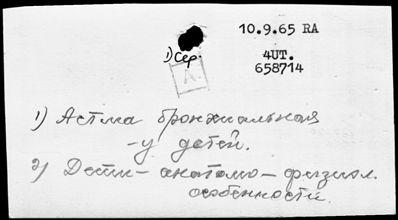 10.9.65 RA
1) Сер.
А.
4UT.
658714
1) Астма бронхиальная
- у детей.
2) Дети - анатомо - физиол.
особенности.